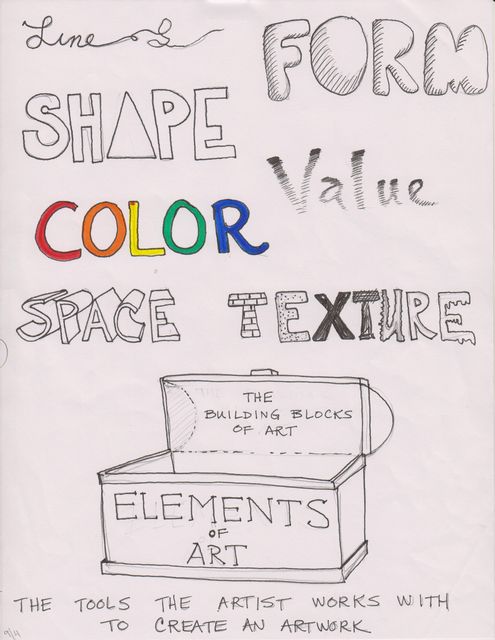 Line
FORM
SHAPE
Value
COLOR
SPACE
TEXTURE
THE
BUILDING BLOCKS
OF ART
ELEMENTS
OF
ART
THE TOOLS THE ARTIST WORKS WITH
TO CREATE AN ARTWORK